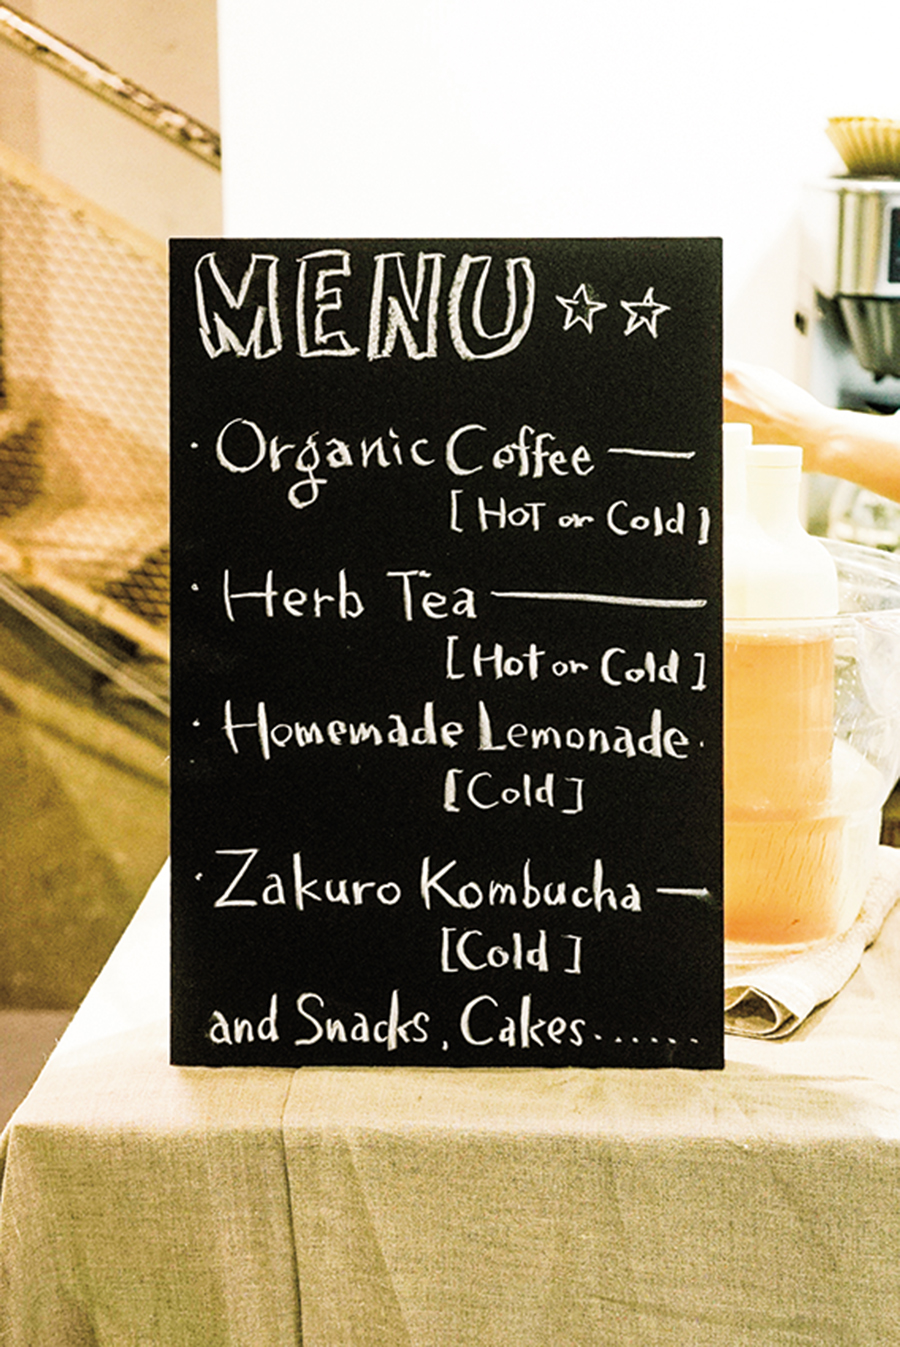 MENU ☆☆
· Organic Coffee —
[HOT or Cold]
· Herb Tea ———
[Hot or Cold]
· Homemade Lemonade ·
[Cold]
· Zakuro Kombucha —
[Cold]
and Snacks, Cakes.......